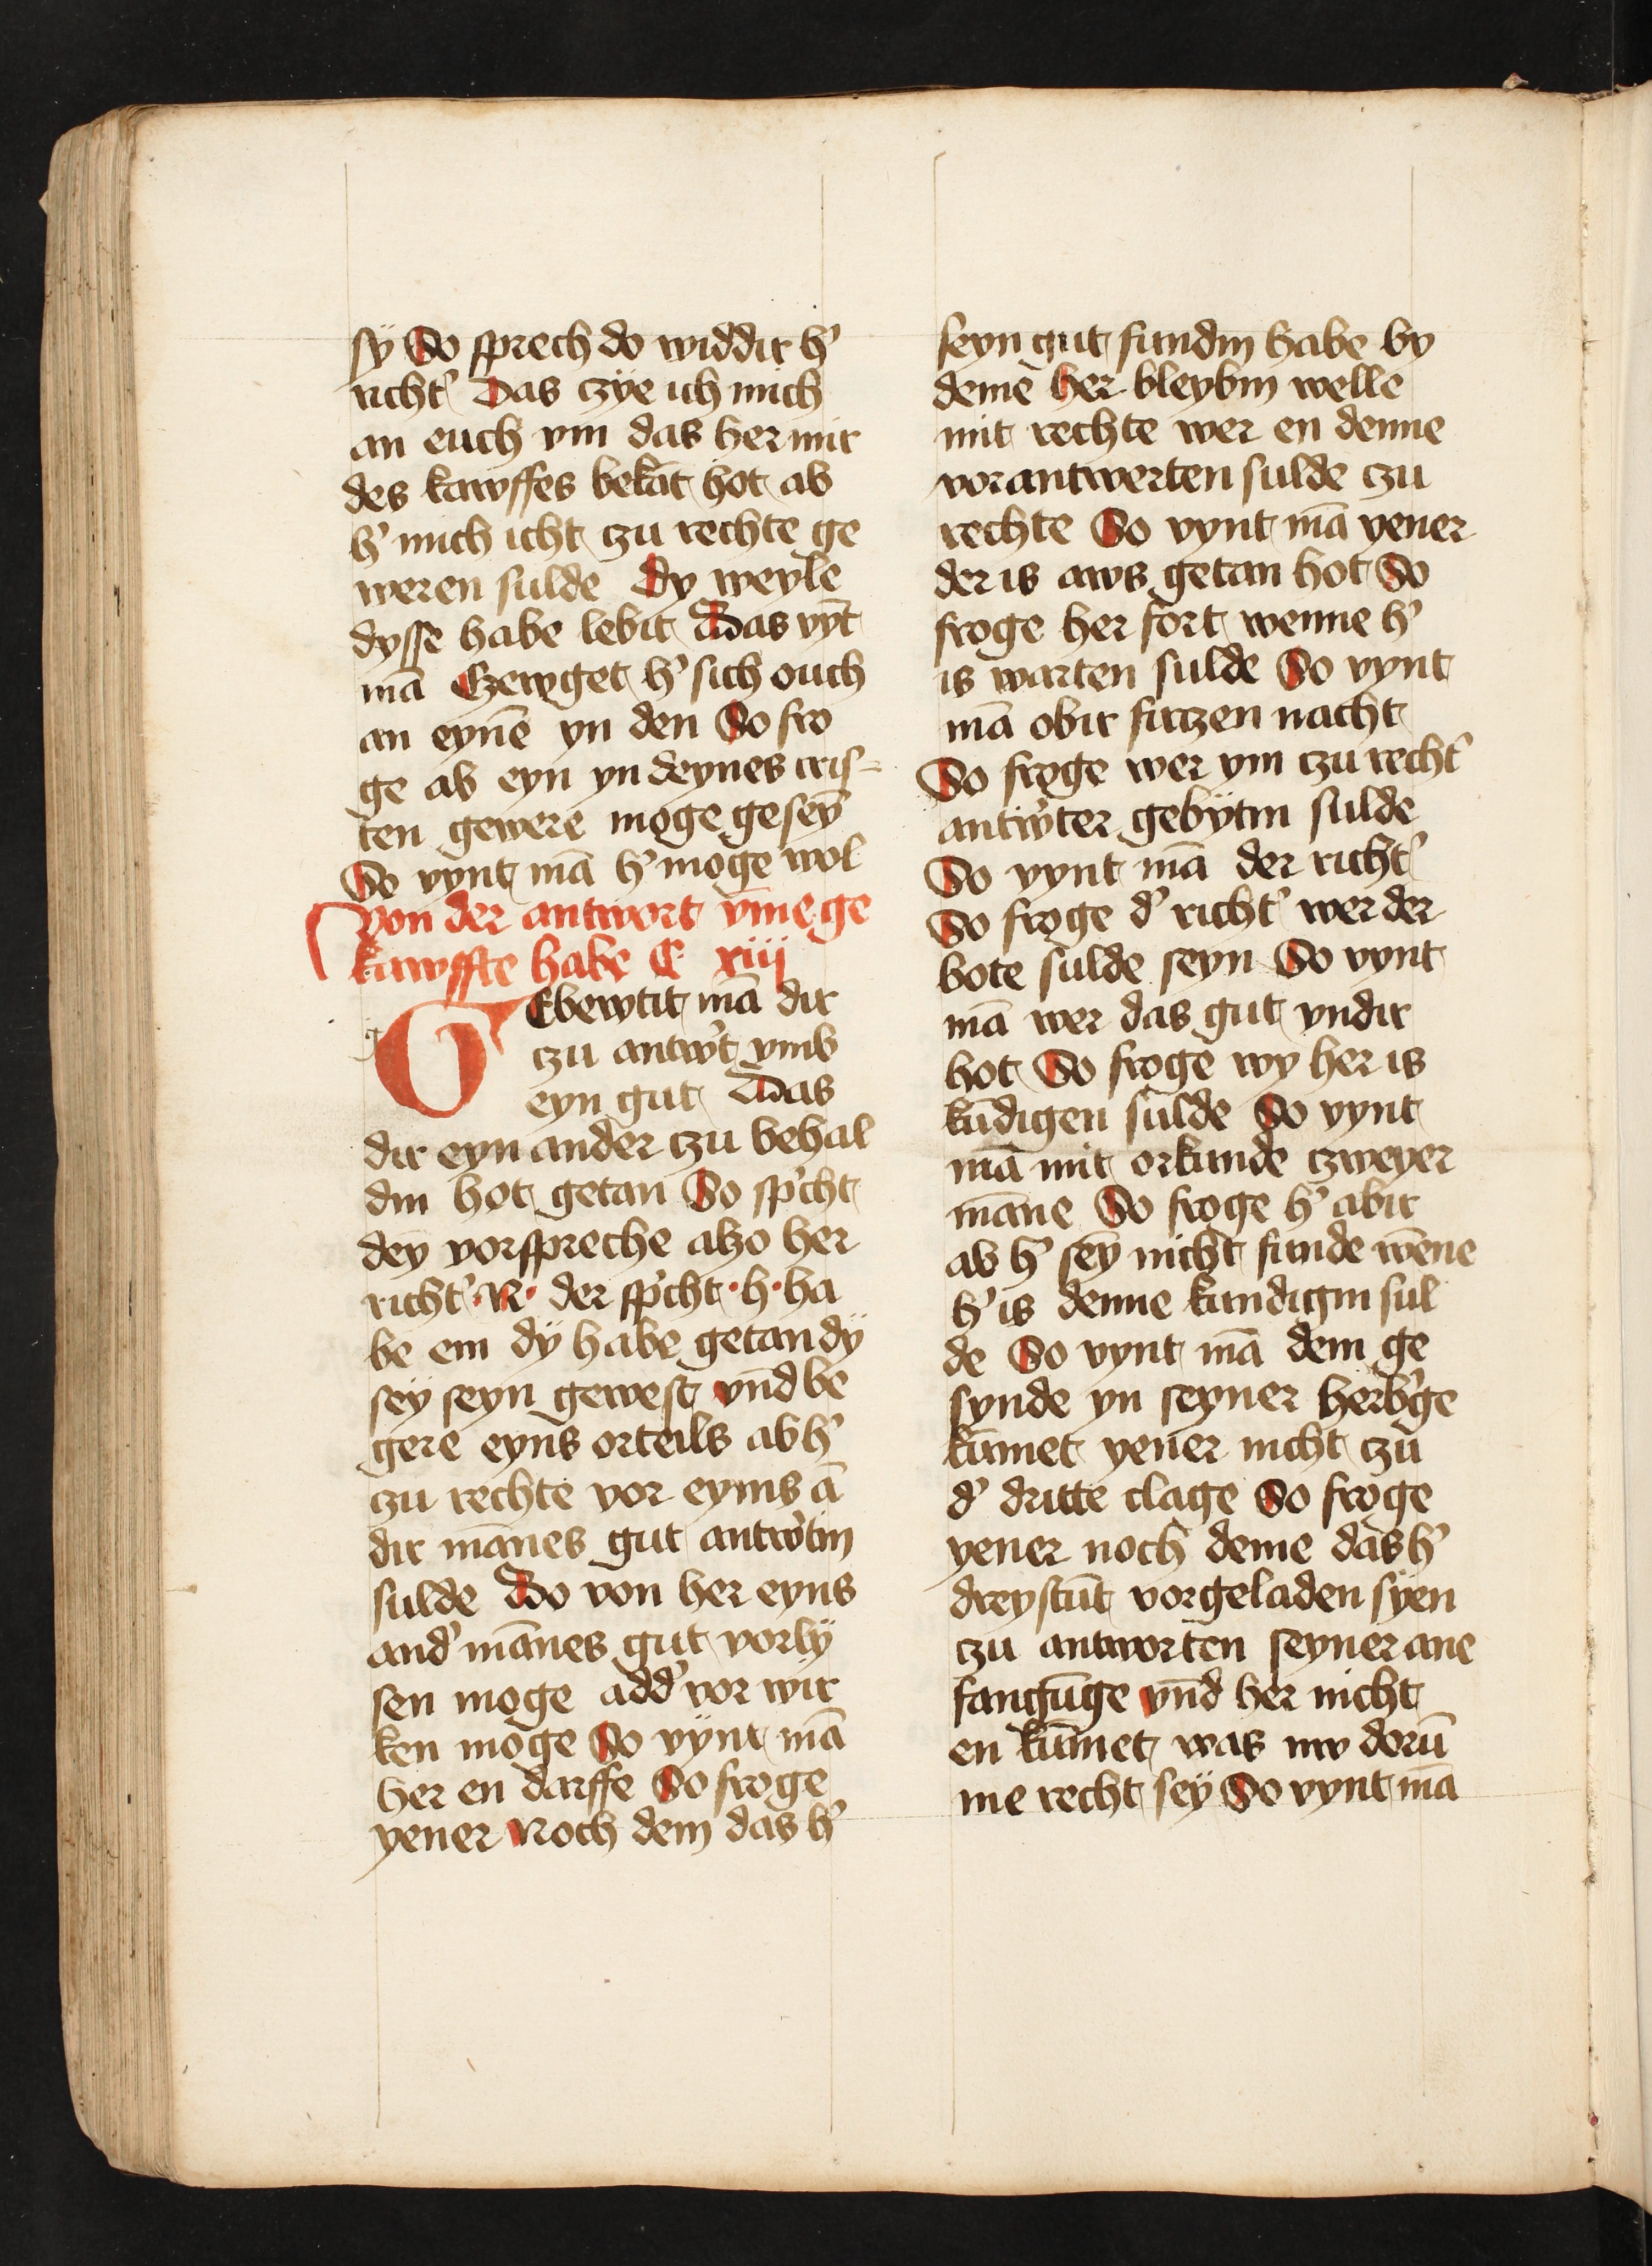 sÿ So sprech do widdir h'
richt' Das czÿe ich mich
an euch vm das her mir
des kawffes bekāt hot ab
h' mich icht zu rechte ge
weren sulde Dy weyle
dysse habe lebit Das vȳt
mā Czewget h' sich ouch
an eynē yn den So fro
ge ab eyn yn deynes cris=
ten gewere moge geseȳ
So vynt mā h' moge wol
von der antwort vm̄e ge
kawffte habe C xiij
g GEbewtit mā dir
czu antw't vmb
eyn gut Das
dir eyn ander czu behal
dm hot getan So sp'cht
dey vorspreche alzo her
richt' ·R· der sp'cht ·h· ha
be em dÿ habe getan dÿ
seÿ seyn gewest vn̄d be
gere eyns orteils ab h'
czu rechte vor eynis ā
dir mānes gut antw'tin
sulde Do von her eyns
and' mānes gut vorlÿ
sen moge add' vor wir
ken moge So vÿnt mā
her en darffe So froge
yener Noch dem das h'
seyn gut fundin habe by
demē her bleybin welle
mit rechte wer en denne
vorantwerten sulde czu
rechte So vynt mā yener
der is aws getan hot So
froge her fort wenne h'
is warten sulde So vynt
mā obir firczen nacht
So froge wer ym czu recht'
antw'ter gebÿtin sulde
So vynt mā der richt'
So froge d' richt' wer der
bote sulde seyn So vynt
mā wer das gut vndir
hot So froge wy her is
kūdigen sulde So vynt
mā mit orkunde czweyer
māne So froge h' abir
ab h' seȳ nicht funde wēne
h' is denne kundigin sul
de So vynt mā dem ge
synde yn seyner herb'ge
kūmet yener nicht czu
d' dritte clage So froge
yener noch deme das h'
dreystūt vorgeladen sÿen
czu antworten seyner ane
fangūge vn̄d her nicht
en kūmet was nw dorū
me recht seÿ So vynt mā